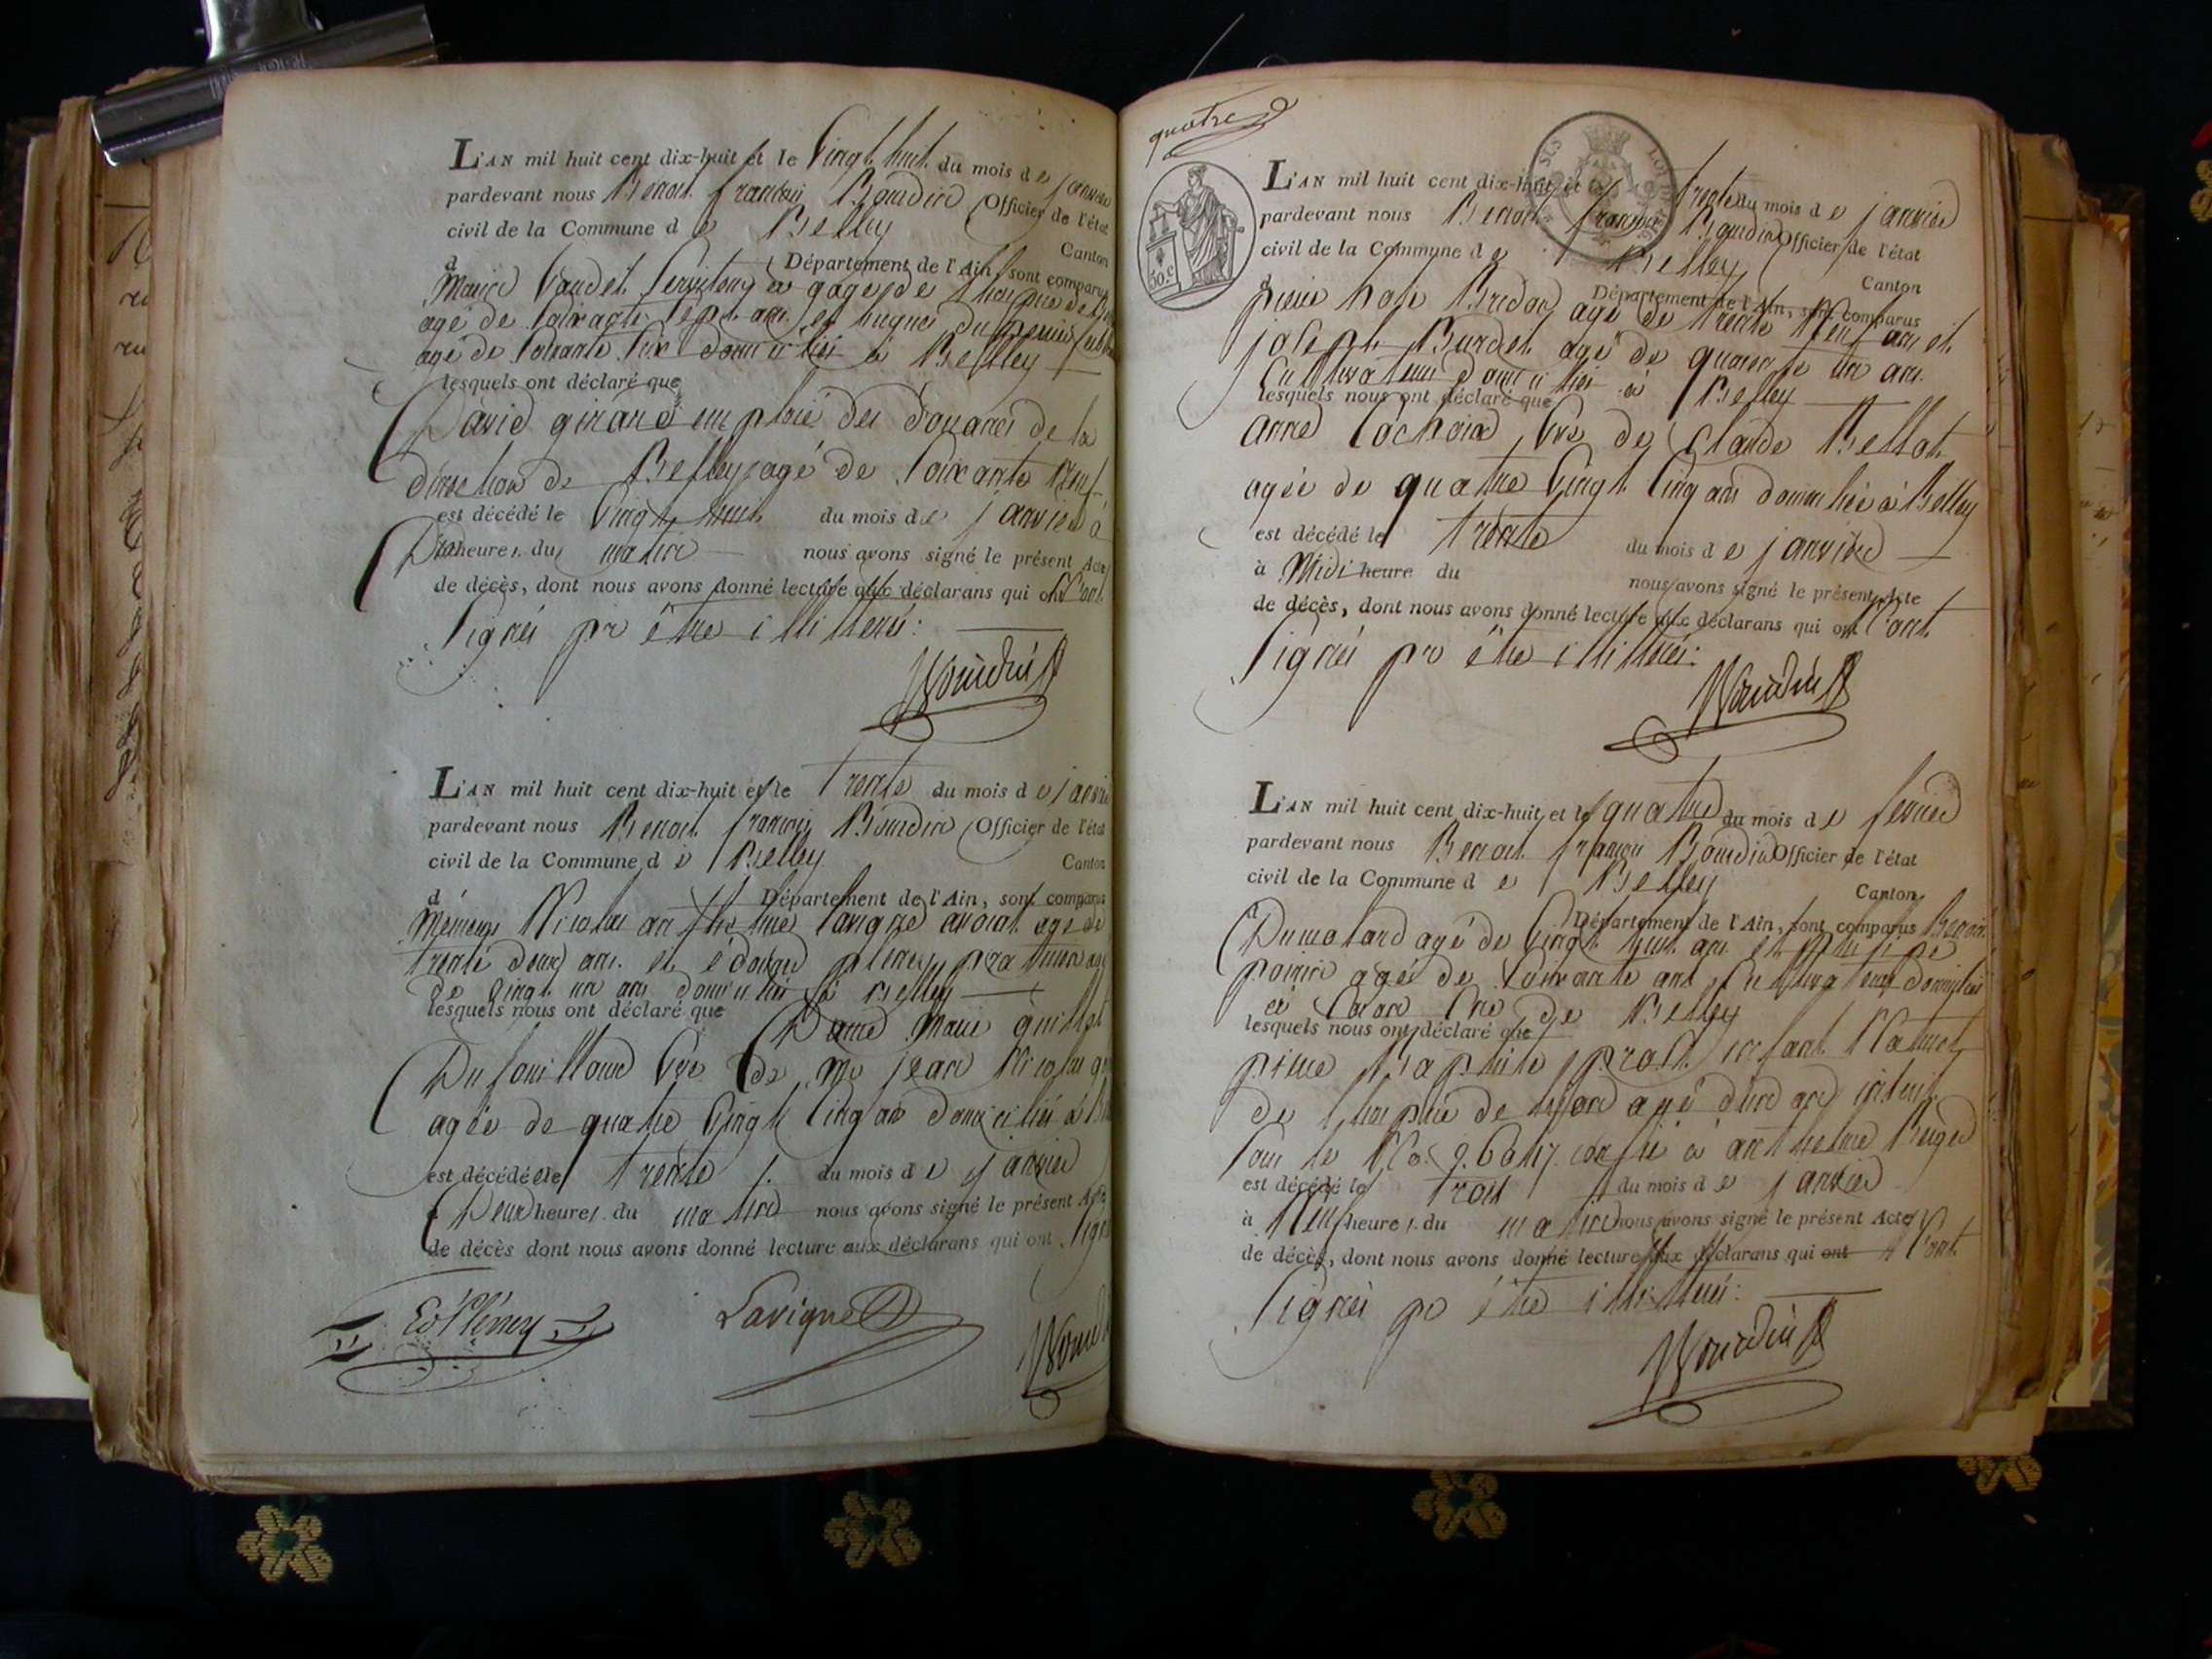 L'AN mil huit cent dix-huit et le Vingt huit du mois de janvier
pardevant nous Benoit françois Bourdin Officier de l'état
civil de la Commune de Belley
Canton
d Département de l'Ain, sont comparus
Gaudet serviteur à gage de
agé de soixante sept ans et hugues
agé de soixante six domiciliés à Belley
lesquels ont déclaré que
David girard emploié des douanes de la
direction de Belley agé de soixante neuf
est décédé le Vingt huit du mois de janvier à
heures du matin nous avons signé le présent Acte
de décès, dont nous avons donné lecture aux déclarans qui ont
signés pr être illittérés:
Bourdin
L'AN mil huit cent dix-huit et le trente du mois de janvier
pardevant nous Benoit françois Bourdin Officier de l'état
civil de la Commune de Belley
Canton
d Département de l'Ain, sont comparus
Nicolas anthelme Lavigne avocat agé de
trente deux ans et édouard plénet praticien agé
de vingt un ans domiciliés à Belley
lesquels nous ont déclaré que Dame Marie
Vve de Me jean Nicolas
agée de quatre Vingt Cinq ans domiciliée à
est décédée le trente du mois de janvier
à Deux heures du matin nous avons signé le présent Acte
de décès dont nous avons donné lecture aux déclarans qui ont signé
Lavigne
quatre
50.c
L'AN mil huit cent dix-huit et le trente du mois de janvier
pardevant nous Benoit françois Bourdin Officier de l'état
civil de la Commune de Belley
Canton
d Département de l'Ain, sont comparus
pierre Bridon agé de trente neuf ans et
joseph Burdet agé de quarente un ans
Cultivateurs domiciliés à Belley
lesquels nous ont déclaré que
anne Vve de Claude Bellot
agée de quatre Vingt Cinq ans domiciliée à Belley
est décédé le trente du mois de janvier
à Midi heure du nous avons signé le présent Acte
de décès, dont nous avons donné lecture aux déclarans qui ont n'ont
signés pr être illittérés:
Bourdin
L'AN mil huit cent dix-huit et le quatre du mois de fevrier
pardevant nous Benoit françois Bourdin Officier de l'état
civil de la Commune de Belley
Canton
d Département de l'Ain, sont comparus Benoit
Dumolard agé de Vingt huit ans et
agé de soixante ans Cultivateurs domiciliés
de Belley
lesquels nous ont déclaré que
pierre Baptiste prost enfant Naturel
de agé d'un an inscrit
sous le No. confié à anthelme
est décédé le trois du mois de janvier
à Neuf heures du matin nous avons signé le présent Acte
de décès, dont nous avons donné lecture aux déclarans qui ont n'ont
signés pr être illittérés:
Bourdin